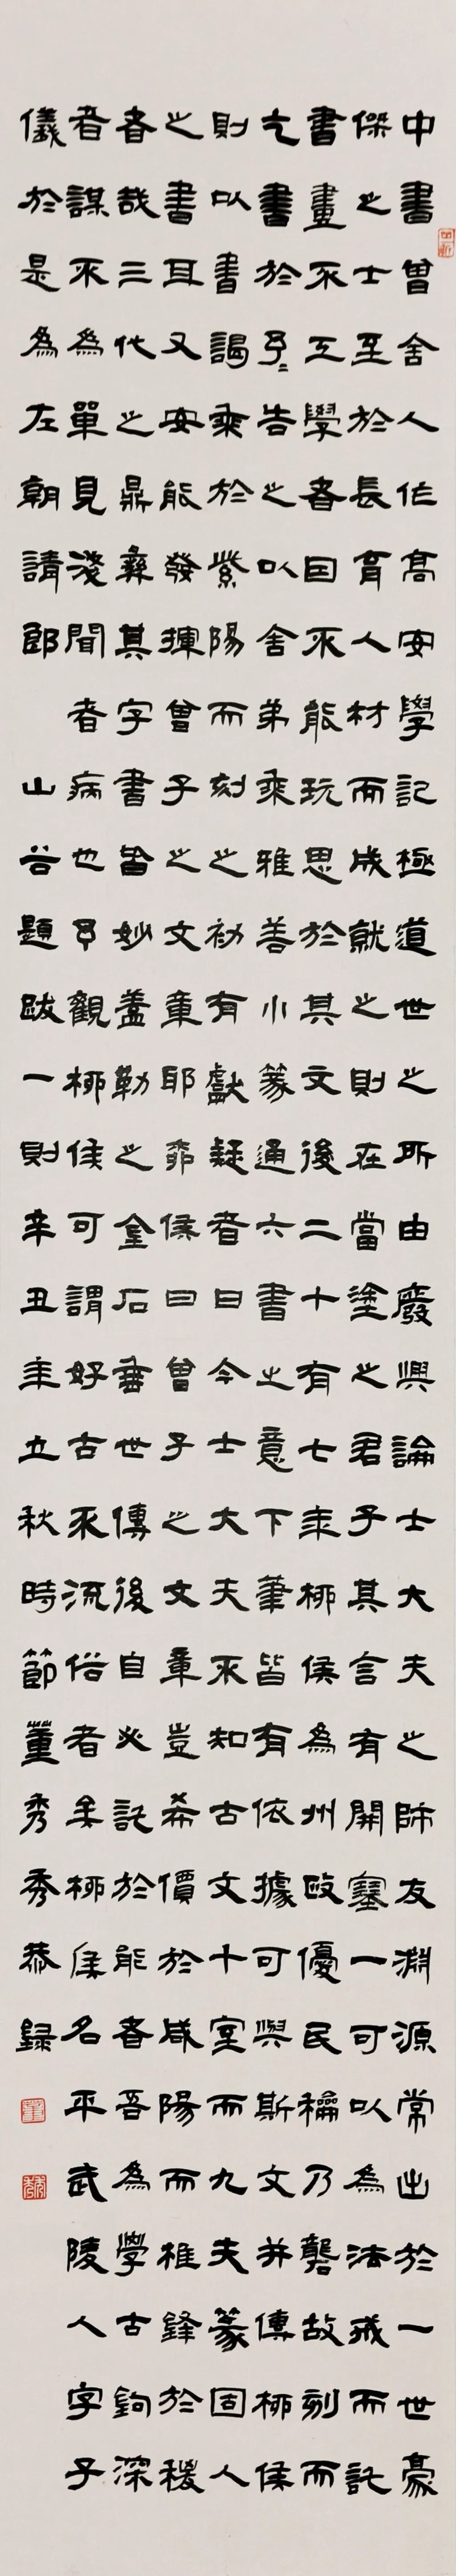 中書曾舍人作高安學記極道世之所由廢興論士大夫之師友淵源常出於一世豪
傑之士至於長育人材而成就之則在當塗之君子其言有開塞一可以為法戒而託
書畫不工學者因不能玩思於其文後二十有七年柳侯為州政優民龢乃礱故刻而
乞書於予〻告之以舍弟乘雅善小篆通六書之意下筆皆有依據可與斯文并傳柳侯
則以書謁乘於紫陽而刻之初有獻疑者曰今士大夫不知古文十室而九夫篆固人
之書耳又安能發揮曾子之文章耶柳侯曰曾子之文章豈希價於咸陽而椎鋒於稷
者哉三代之鼎彝其字書皆妙蓋勒之金石垂世傳後自必託於能者吾為學古鉤深
者謀不為單見淺聞者病也㠯觀柳侯可謂好古不流俗者矣柳侯名平武陵人字子
儀於是為左朝請郎 山谷題跋一則辛丑年立秋時節董秀秀恭錄